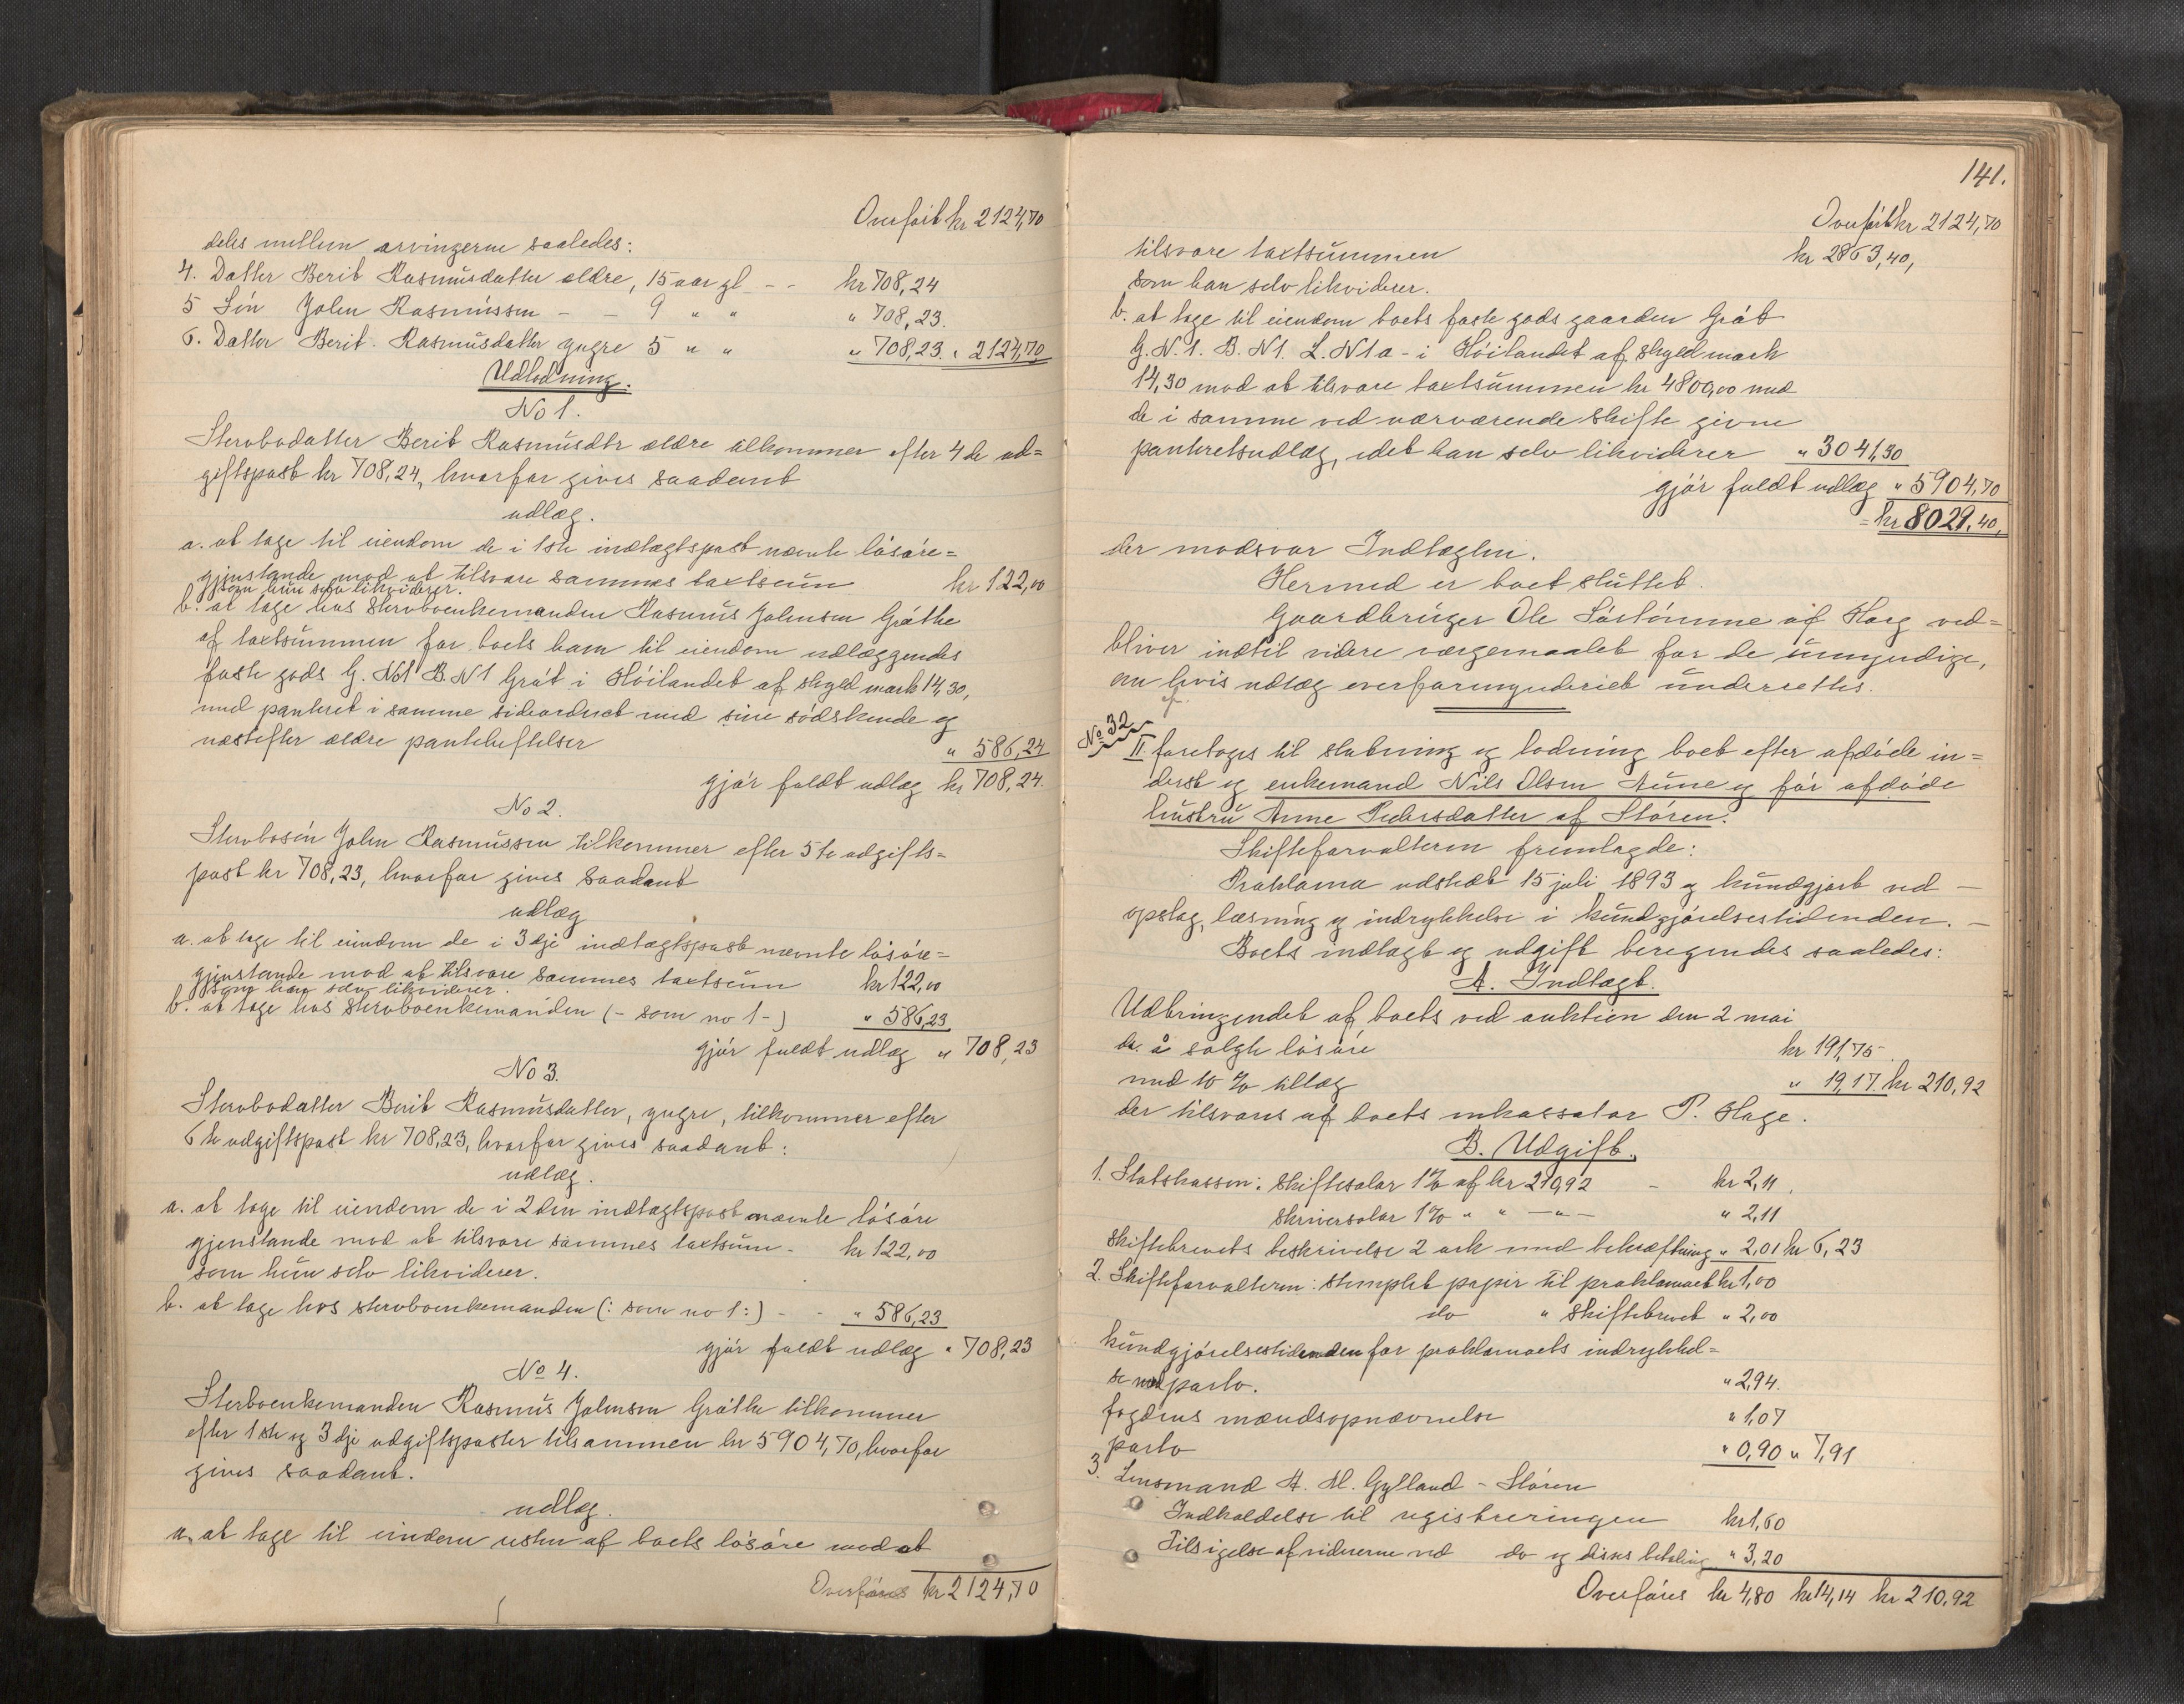 Overført kr 2124,70
deles mellem arvingerne saaledes:
4. Datter Berit Rasmusdatter ældre, 15 aar gl - - kr 708,24
5 Søn John Rasmussen - - 9 " " " 708,23.
6. Datter Berit Rasmusdatter yngre 5 " " " 708,23. " 2124,70
Udlodning.
No 1.
Stervbodatter Berit Rasmusdtr ældre tilkommer efter 4de ud=
giftspost kr 708,24, hvorfor gives saadant
udlæg.
a. at tage til eiendom de i 1ste indtægtspost nævnte løsøre=
gjenstande mod at tilsvare sammes taxtsum kr 122,00
som hun selv likviderer.
b. at tage hos stervboenkemanden Rasmus Johnsen Grøthe
af taxtsummen for boets ham til eiendom udlæggendes
faste gods G. No1 B.N1 Grøt i Høilandet af skyld mark 14,30,
med panteret i samme sideordnet med sine sødskende og
næstefter ældre panteheftelser " 586,24
gjør fuldt udlæg kr 708,24.
No 2.
Stervbosøn John Rasmussen tilkommer efter 5te udgifts=
post kr 708,23, hvorfor gives saadant
udlæg
a. at tage til eiendom de i 3dje indtægtspost nævnte løsøre=
gjenstande mod at tilsvare sammes taxtsum kr 122,00
som han selv likviderer.
b. at tage hos stervboenkemanden (- som no 1 -) " 586,23
gjør fuldt udlæg " 708,23
No 3.
Stervbodatter Berit Rasmusdatter, yngre, tilkommer efter
6te udgiftspost kr 708,23, hvorfor gives saadant:
udlæg.
a. at tage til eiendom de i 2den indtægtspost nævnte løsøre
gjenstande mod at tilsvare sammes taxtsum - kr 122,00
som hun selv likviderer.
b. at tage hos stervboenkemanden (: som no 1 :) - - " 586,23
gjør fuldt udlæg " 708,23
No 4.
Sterboenkemanden Rasmus Johnsen Grøthe tilkommer
efter 1ste og 3dje udgiftsposter tilsammen kr 5904,70, hvorfor
gives saadant.
udlæg.
a. at tage til eiendom resten af boets løsøre mod at
Overføres kr 2124,70
141.
Overført kr 2124,70
tilsvare taxtsummen kr 2863,40,
som han selv likviderer.
b. at tage til eiendom boets faste gods gaarden Grøt
G.N.1. B.N1. L.N1a - i Høilandet af skyld mark
14,30 mod at tilsvare taxtsummen kr 4800,00 med
de i samme ved nærværende skifte givne
panteretsudlæg, idet han selv likviderer " 3041,30
gjør fuldt udlæg " 5904,70
= kr 8029,40,
der modsvar Indtægten.
Hermed er boet sluttet.
Gaardbruger Ole Sørtømme af Horg ved=
bliver indtil videre værgemaalet for de umyndige,
om hvis udlæg overformynderiet underrettes.
No 32
II. foretoges til slutning og lodning boet efter afdøde in=
derst og enkemand Nils Olsen Aune og før afdøde
hustru Anne Pedersdatter af Støren.
Skifteforvalteren fremlagde:
Proklama udstedt 15 juli 1893 og kundgjort ved -
opslag, læsning og indrykkelse i kundgjørelsestidenden. -
Boets indtægt og udgift beregnedes saaledes:
A. Indtægt.
Udbringendet af boets ved auktion den 2 mai
d. å solgte løsøre kr 191,75
med 10 % tillæg " 19,17. kr 210,92
der tilsvares af boets inkassator P. Hage.
B. Udgift.
1. Statskassen: skiftesalar 1% af kr 210,92 - kr 2,11.
skriversalar 1% " " - " - " 2,11
skiftebrevets beskrivelse 2 ark med bekræftning " 2,01 kr 6,23
2. Skifteforvalteren: stemplet papir til proklamaet kr 1,00
do " skiftebrevet " 2,00
kundgjørelsestidenden for proklamaets indrykkel=
se med porto. " 2,94.
fogdens mændsopnævnelse " 1,07
porto " 0,90 " 7,91
3. Lensmand A. M. Gylland - Støren
Indkaldelse til registreringen kr 1,60
Tilsigelse af vidnerne ved do og disses betaling " 3,20
Overføres kr 4,80 kr 14,14 kr 210,92